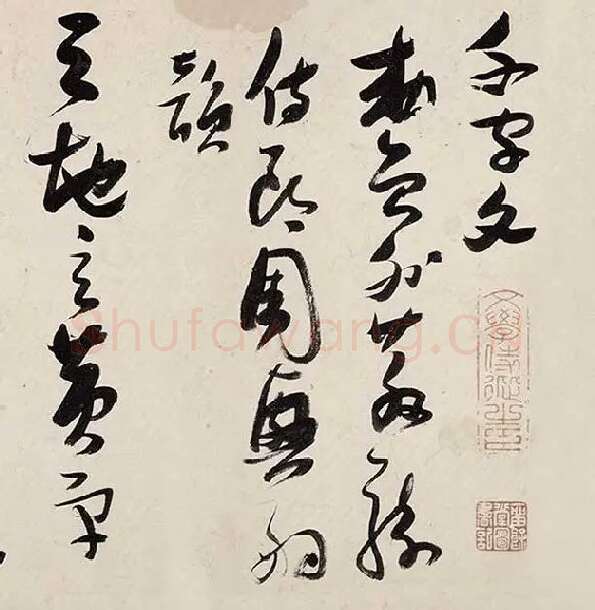 千字文
敕員外散騎
侍郎周興嗣
韻
天地玄黃宇
shufawang.cn